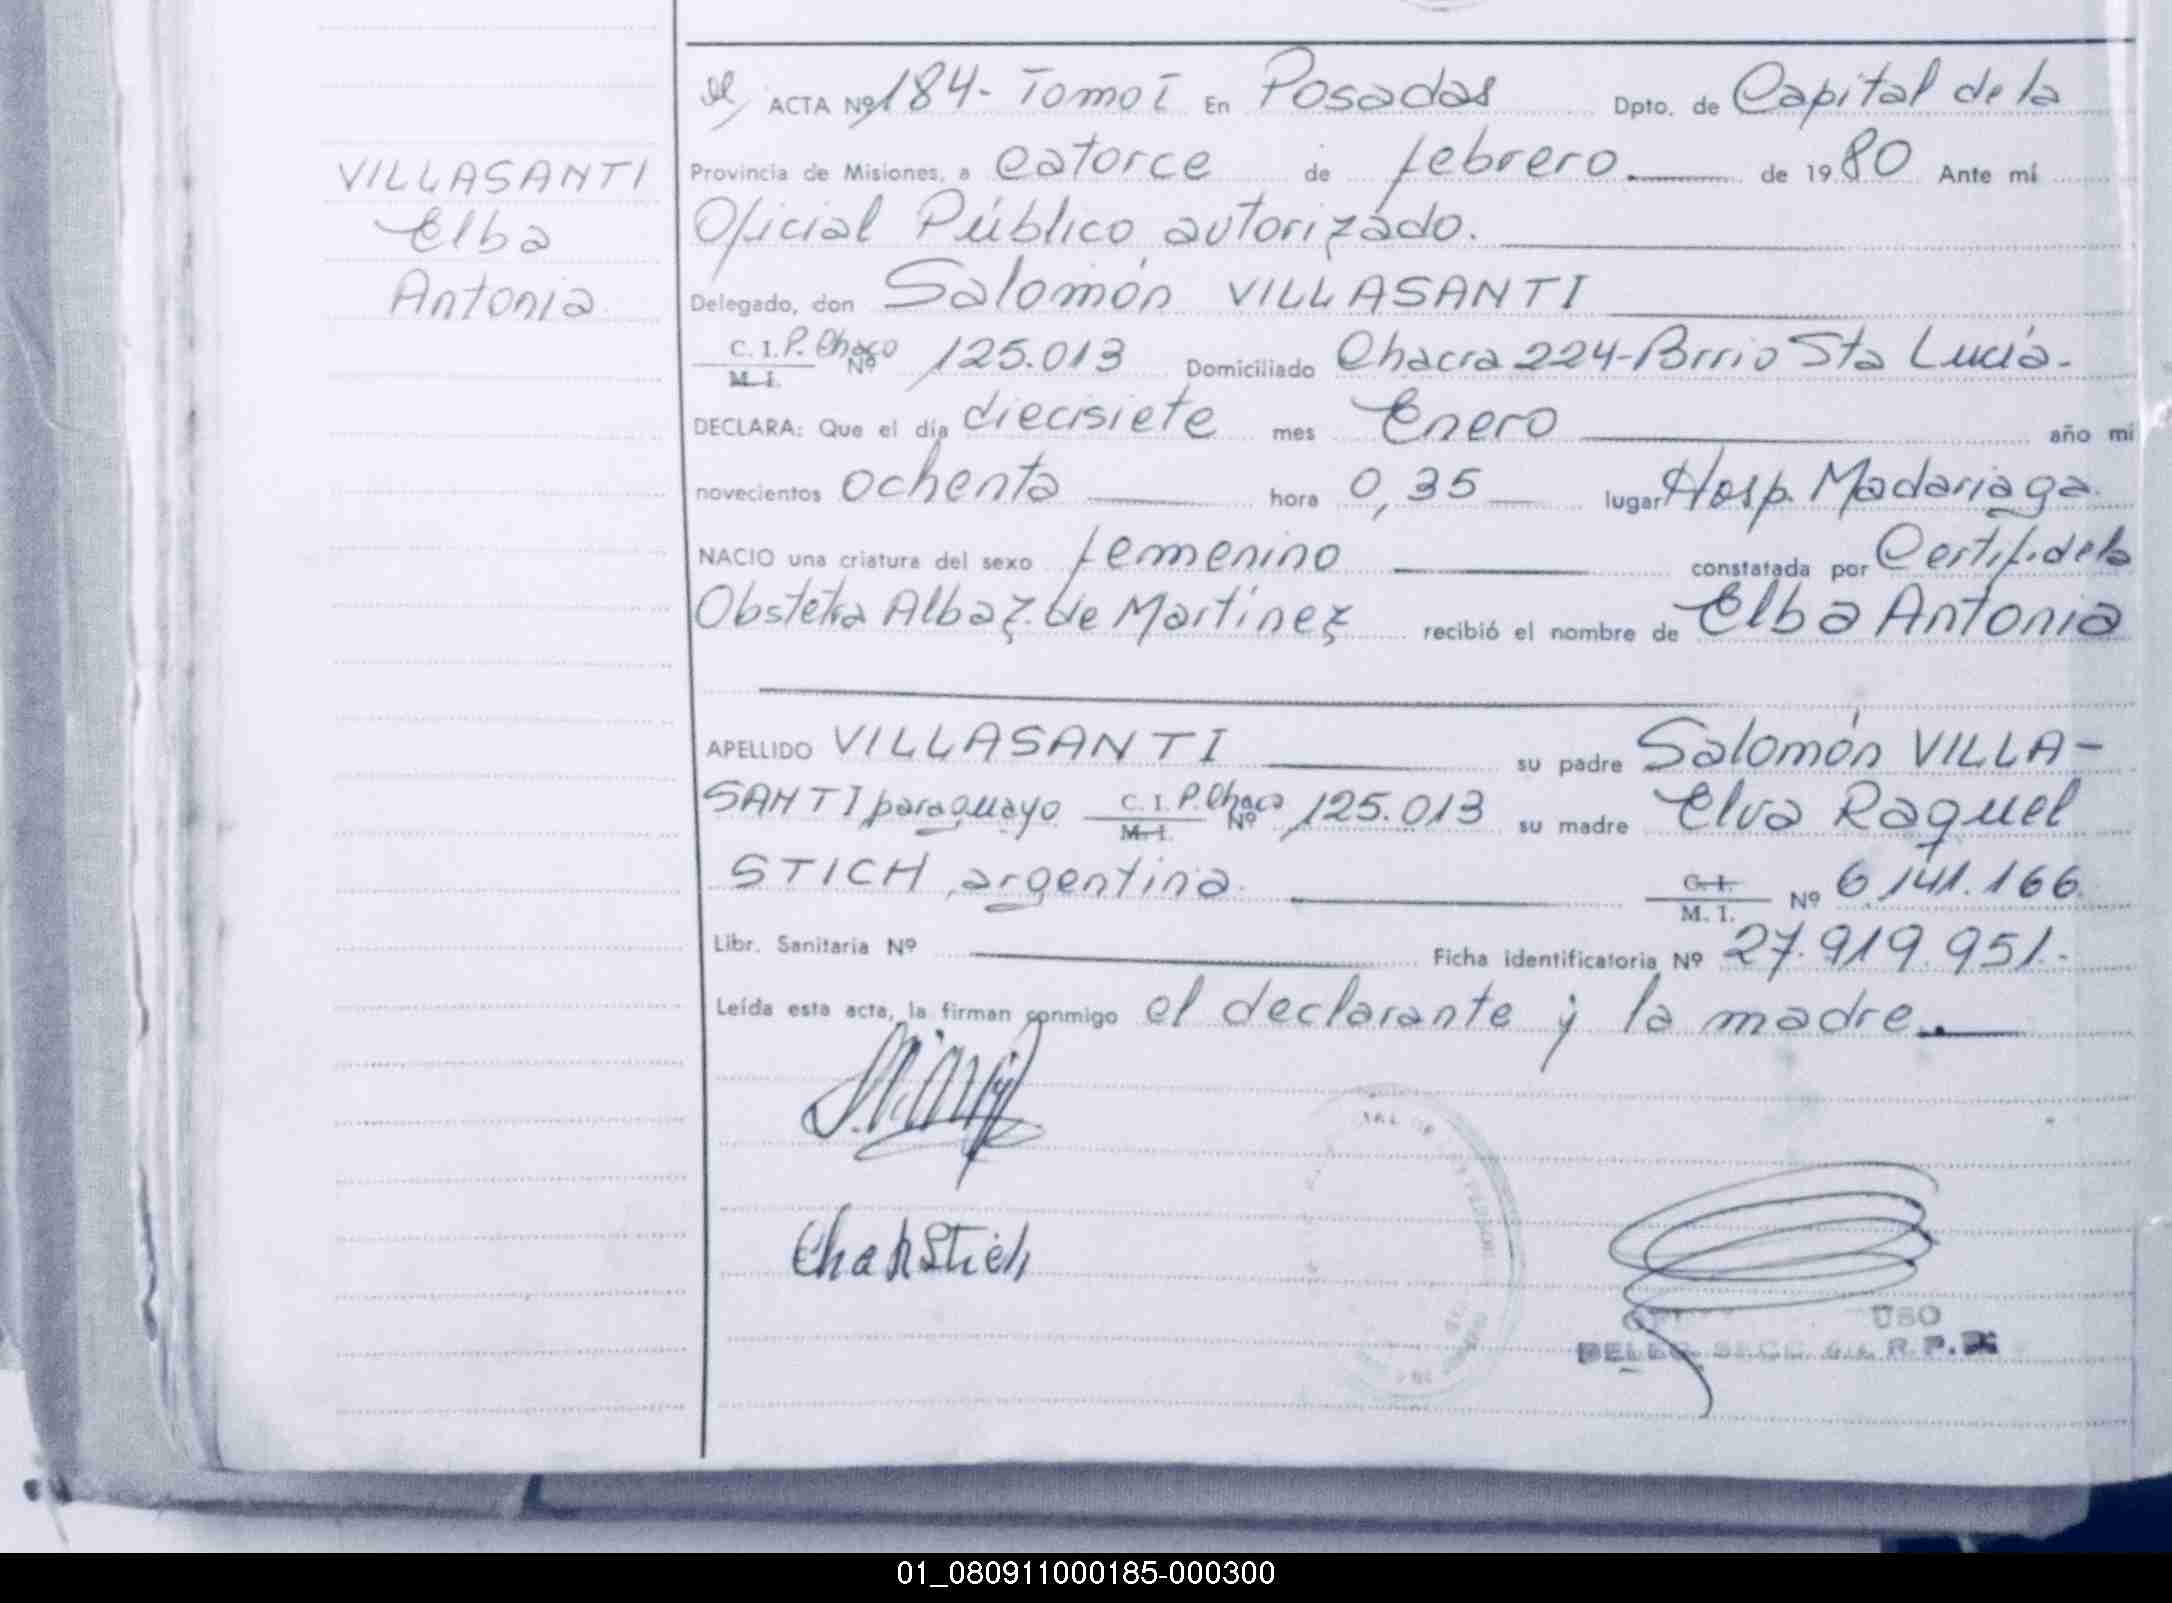 VILLASANTI
Elba
Antonia
ACTA Nº 184- Tomo I En Posadas Dpto. de Capital de la
Provincia de Misiones, a catorce de febrero. de 1980 Ante mí
Oficial Público autorizado.
Delegado, don Salomón VILLASANTI
C. I. P. Chaco
M. I. Nº 125.013 Domiciliado Chacra 224-Brrio Sta Lucía.
DECLARA: Que el día diecisiete mes Enero año mi
novecientos ochenta hora 0,35 lugar Hosp. Madariaga.
NACIO una criatura del sexo femenino constatada por Certif. de la
Obstetra Alba Z. de Martínez recibió el nombre de Elba Antonia
APELLIDO VILLASANTI su padre Salomón VILLA-
SANTI paraguayo C. I. P. Chaco
M. I. Nº 125.013 su madre Elva Raquel
STICH, argentina. C. I.
M. I. Nº 6.141.166.
Libr. Sanitaria Nº Ficha identificatoria Nº 27.919.951.-
Leída esta acta, la firman conmigo el declarante y la madre.
USO
DELEG. SECC. R. P.
01_080911000185-000300